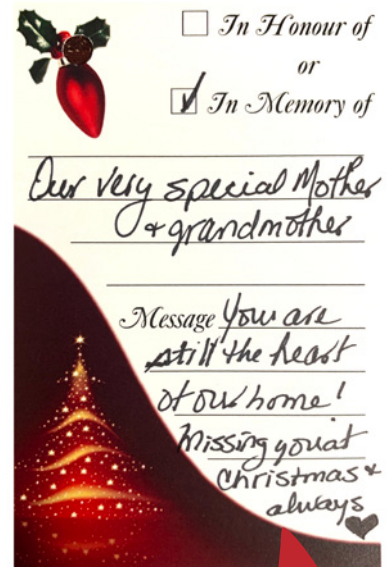 In Honour of
or
In Memory of
Our very special Mother
& grandmother
Message You are
still the heart
of our home!
Missing you at
Christmas &
always